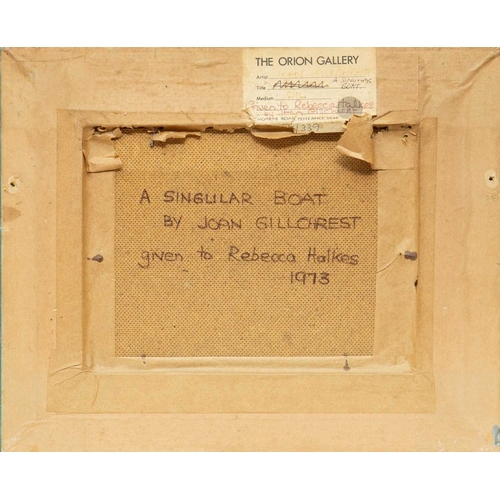 THE ORION GALLERY
Artist
Title A SINGULAR
BOAT.
Medium
given to Rebecca Halkes
1339
A SINGULAR BOAT
BY JOAN GILLCHREST
given to Rebecca Halkes
1973